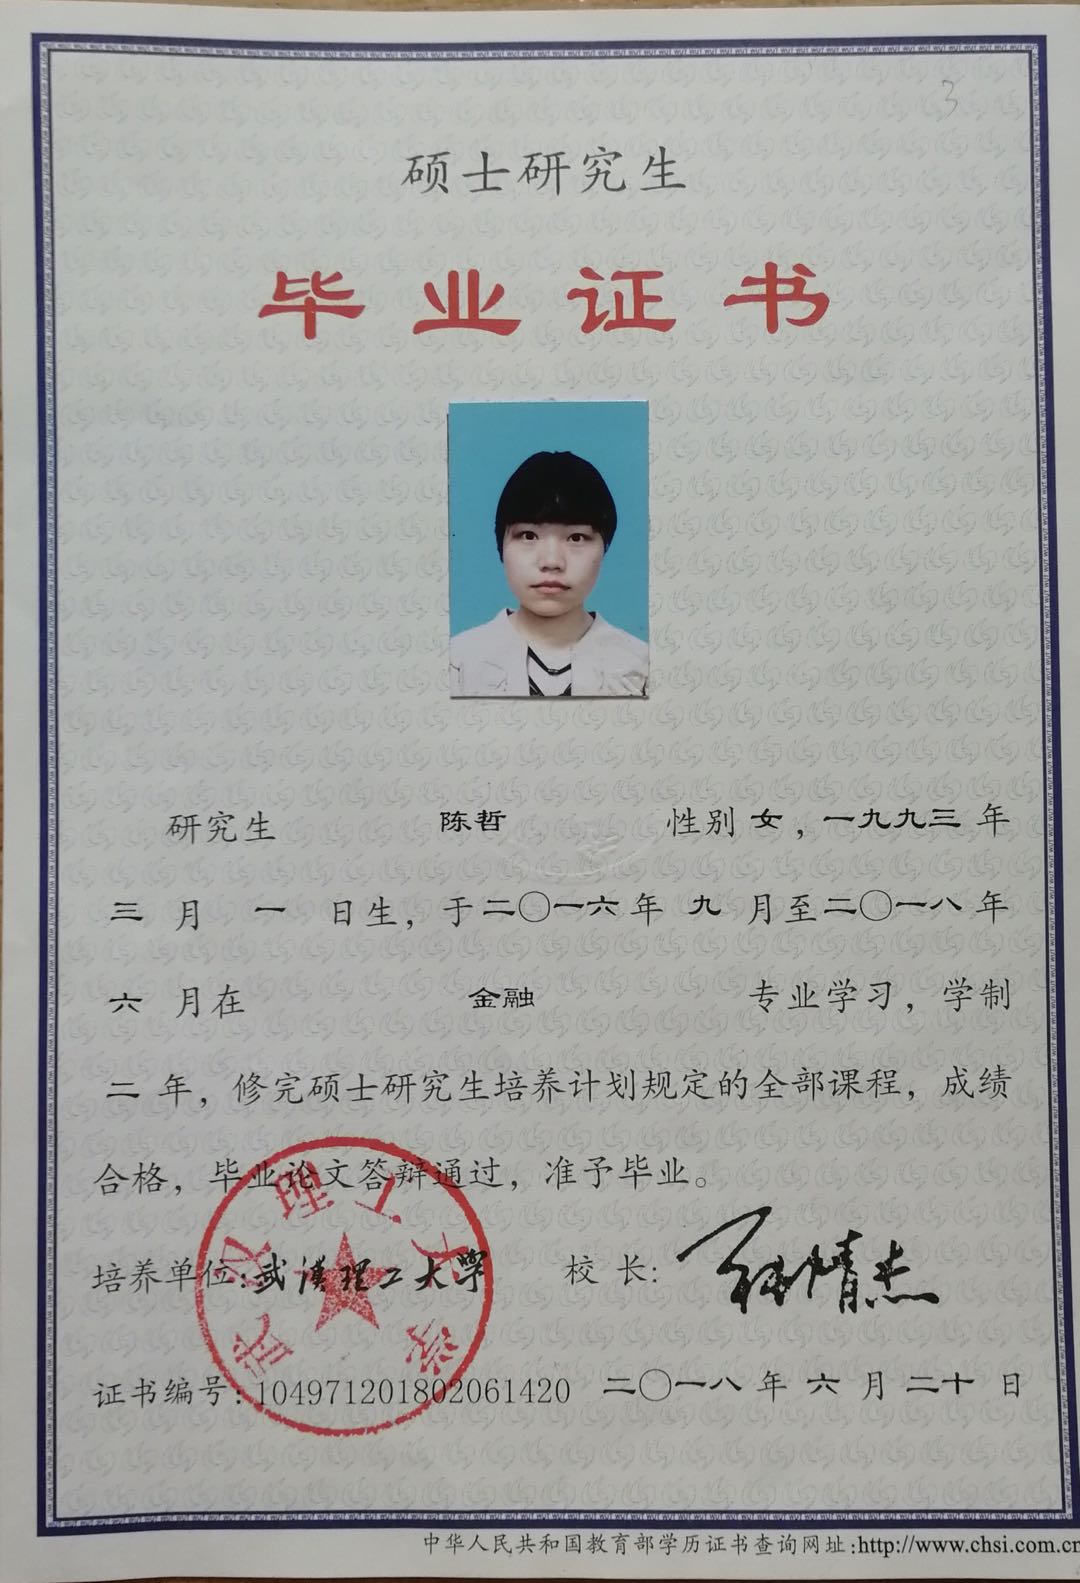 3
硕士研究生
毕业证书
研究生 陈哲 性别 女，一九九三 年
三 月 一 日生，于 二〇一六 年 九 月至 二〇一八 年
六 月在 金融 专业学习，学制
二 年，修完硕士研究生培养计划规定的全部课程，成绩
合格，毕业论文答辩通过，准予毕业。
培养单位:武漢理工大學 校 长:
武汉理工大学
证书编号:104971201802061420 二〇一八 年 六 月 二十 日
中华人民共和国教育部学历证书查询网址:http://www.chsi.com.cn